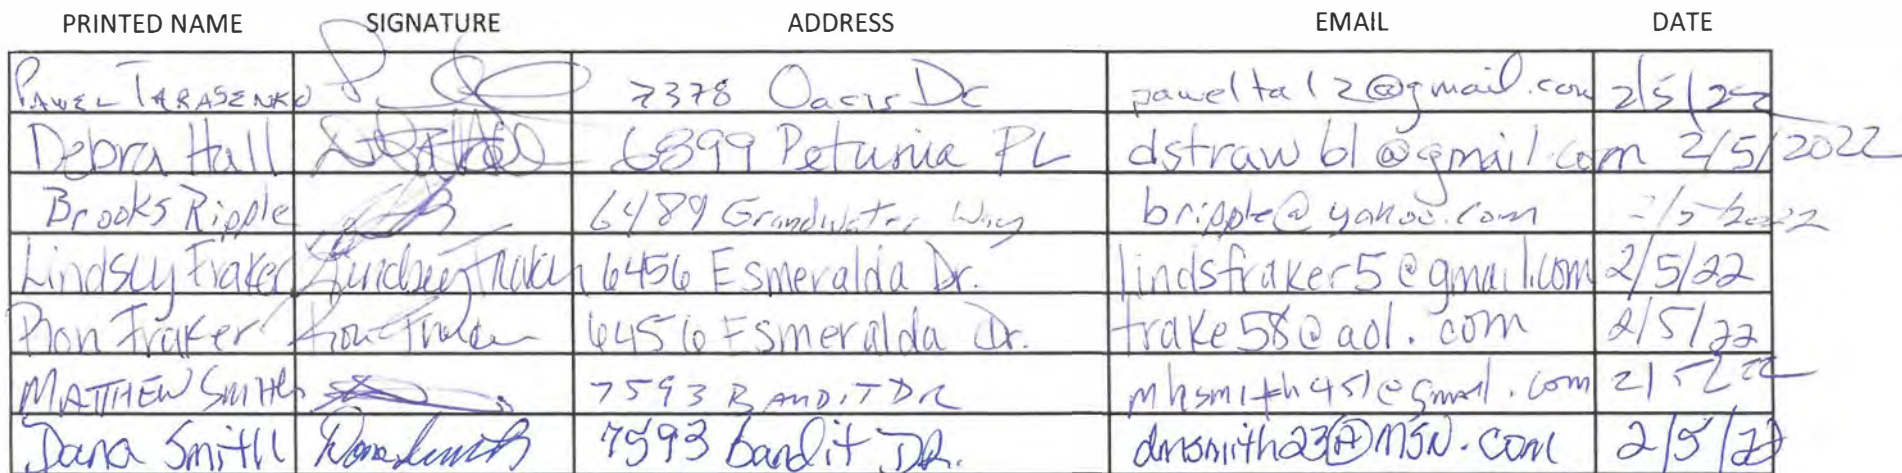 PRINTED NAME SIGNATURE ADDRESS EMAIL DATE
PAWEL TARASENKO 7378 Oacis Dr pawelta12@gmail.com 2/5/22
Debra Hall 6899 Petunia PL dstrawbl@gmail.com 2/5/2022
Brooks Ripple 6489 Grandwater Way bripple@yahoo.com 2/5/2022
Lindsey Fraker Lindsey Fraker 6456 Esmeralda Dr. lindsfraker5@gmail.com 2/5/22
Ron Fraker Ron Fraker 6456 Esmeralda Dr. frake58@aol.com 2/5/22
MATTHEW SMITH 7593 BANDIT DR mhsmith451@gmail.com 2/5/22
Dana Smith Dana Smith 7593 Bandit DR. dmsmith23@MSN.com 2/5/22